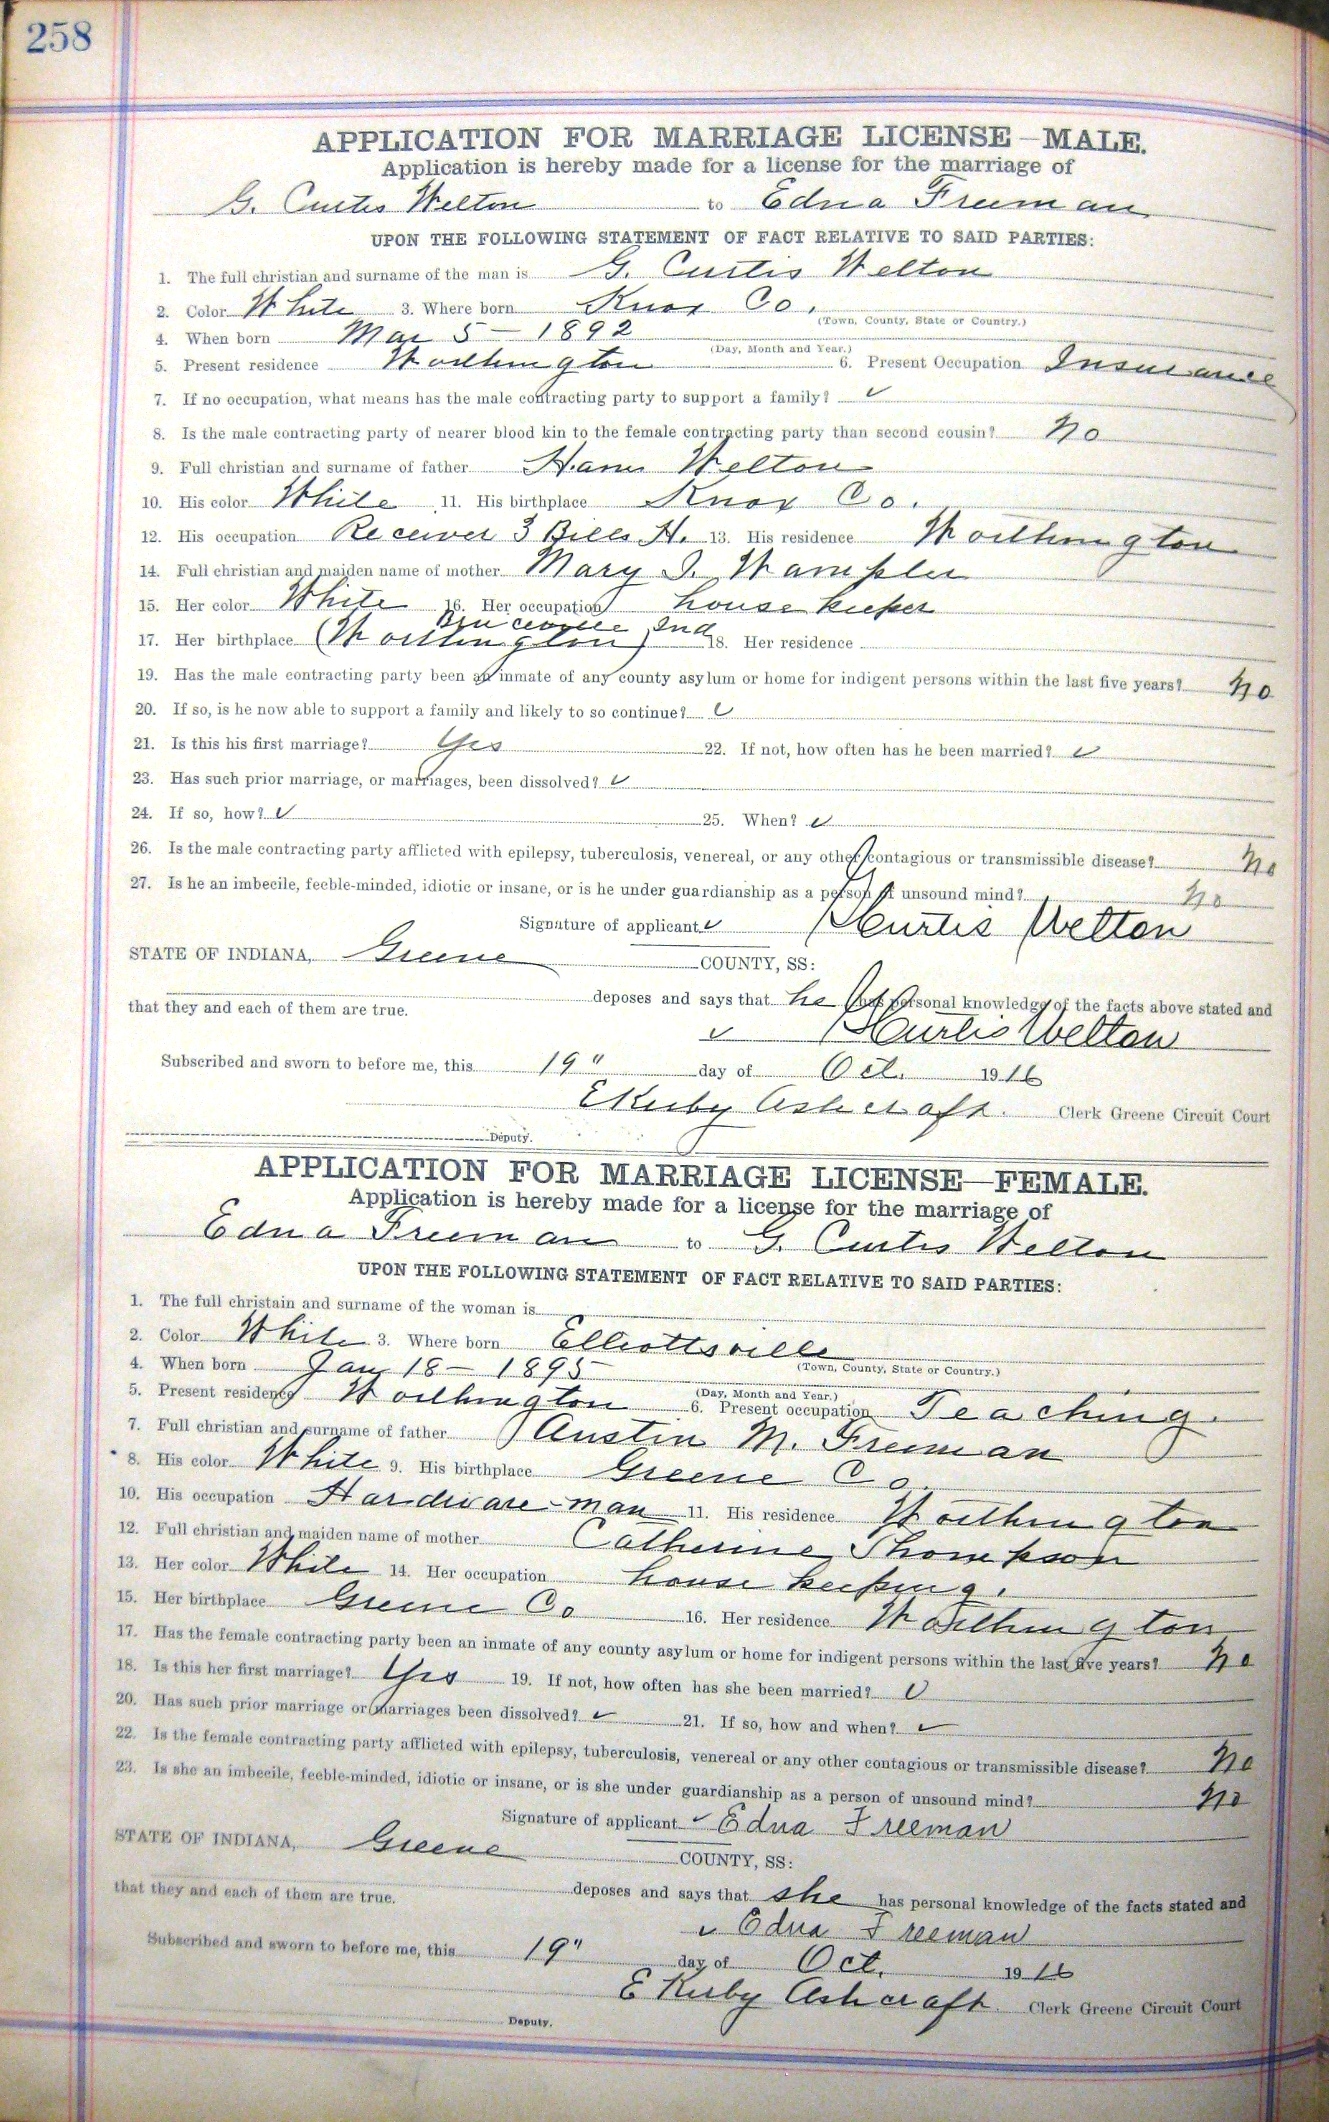 258
APPLICATION FOR MARRIAGE LICENSE—MALE.
Application is hereby made for a license for the marriage of
G. Curtis Welton to Edna Freeman
UPON THE FOLLOWING STATEMENT OF FACT RELATIVE TO SAID PARTIES:
1. The full christian and surname of the man is G. Curtis Welton
2. Color White 3. Where born Knox Co.
(Town, County, State or Country.)
4. When born Mar 5 — 1892
(Day, Month and Year.)
5. Present residence Worthington 6. Present Occupation Insurance
7. If no occupation, what means has the male contracting party to support a family? ✓
8. Is the male contracting party of nearer blood kin to the female contracting party than second cousin? No
9. Full christian and surname of father Welton
10. His color White 11. His birthplace Knox Co.
12. His occupation Receiver 13. His residence Worthington
14. Full christian and maiden name of mother Mary J. Wampler
15. Her color White 16. Her occupation house keeper
Bruceville Ind
17. Her birthplace (Worthington) 18. Her residence
19. Has the male contracting party been an inmate of any county asylum or home for indigent persons within the last five years? No
20. If so, is he now able to support a family and likely to so continue? ✓
21. Is this his first marriage? Yes 22. If not, how often has he been married? ✓
23. Has such prior marriage, or marriages, been dissolved? ✓
24. If so, how? ✓ 25. When? ✓
26. Is the male contracting party afflicted with epilepsy, tuberculosis, venereal, or any other contagious or transmissible disease? No
27. Is he an imbecile, feeble-minded, idiotic or insane, or is he under guardianship as a person of unsound mind? No
Signature of applicant ✓ G Curtis Welton
STATE OF INDIANA, Greene COUNTY, SS:
deposes and says that he has personal knowledge of the facts above stated and
that they and each of them are true.
✓ G Curtis Welton
Subscribed and sworn to before me, this 19" day of Oct. 1916
E Kirby Ashcraft. Clerk Greene Circuit Court
Deputy.
APPLICATION FOR MARRIAGE LICENSE—FEMALE.
Application is hereby made for a license for the marriage of
Edna Freeman to G. Curtis Welton
UPON THE FOLLOWING STATEMENT OF FACT RELATIVE TO SAID PARTIES:
1. The full christain and surname of the woman is
2. Color White 3. Where born Elliottsville
(Town, County, State or Country.)
4. When born Jan 18 — 1895
(Day, Month and Year.)
5. Present residence Worthington 6. Present occupation Teaching.
7. Full christian and surname of father Austin M. Freeman
8. His color White 9. His birthplace Greene Co
10. His occupation Hardware-man 11. His residence Worthington
12. Full christian and maiden name of mother Catherine Thompson
13. Her color White 14. Her occupation house keeping.
15. Her birthplace Greene Co 16. Her residence Worthington
17. Has the female contracting party been an inmate of any county asylum or home for indigent persons within the last five years? No
18. Is this her first marriage? Yes 19. If not, how often has she been married? ✓
20. Has such prior marriage or marriages been dissolved? ✓ 21. If so, how and when? ✓
22. Is the female contracting party afflicted with epilepsy, tuberculosis, venereal or any other contagious or transmissible disease? No
23. Is she an imbecile, feeble-minded, idiotic or insane, or is she under guardianship as a person of unsound mind? No
Signature of applicant ✓ Edna Freeman
STATE OF INDIANA, Greene COUNTY, SS:
deposes and says that she has personal knowledge of the facts stated and
that they and each of them are true.
✓ Edna Freeman
Subscribed and sworn to before me, this 19" day of Oct. 1916
E Kirby Ashcraft. Clerk Greene Circuit Court
Deputy.